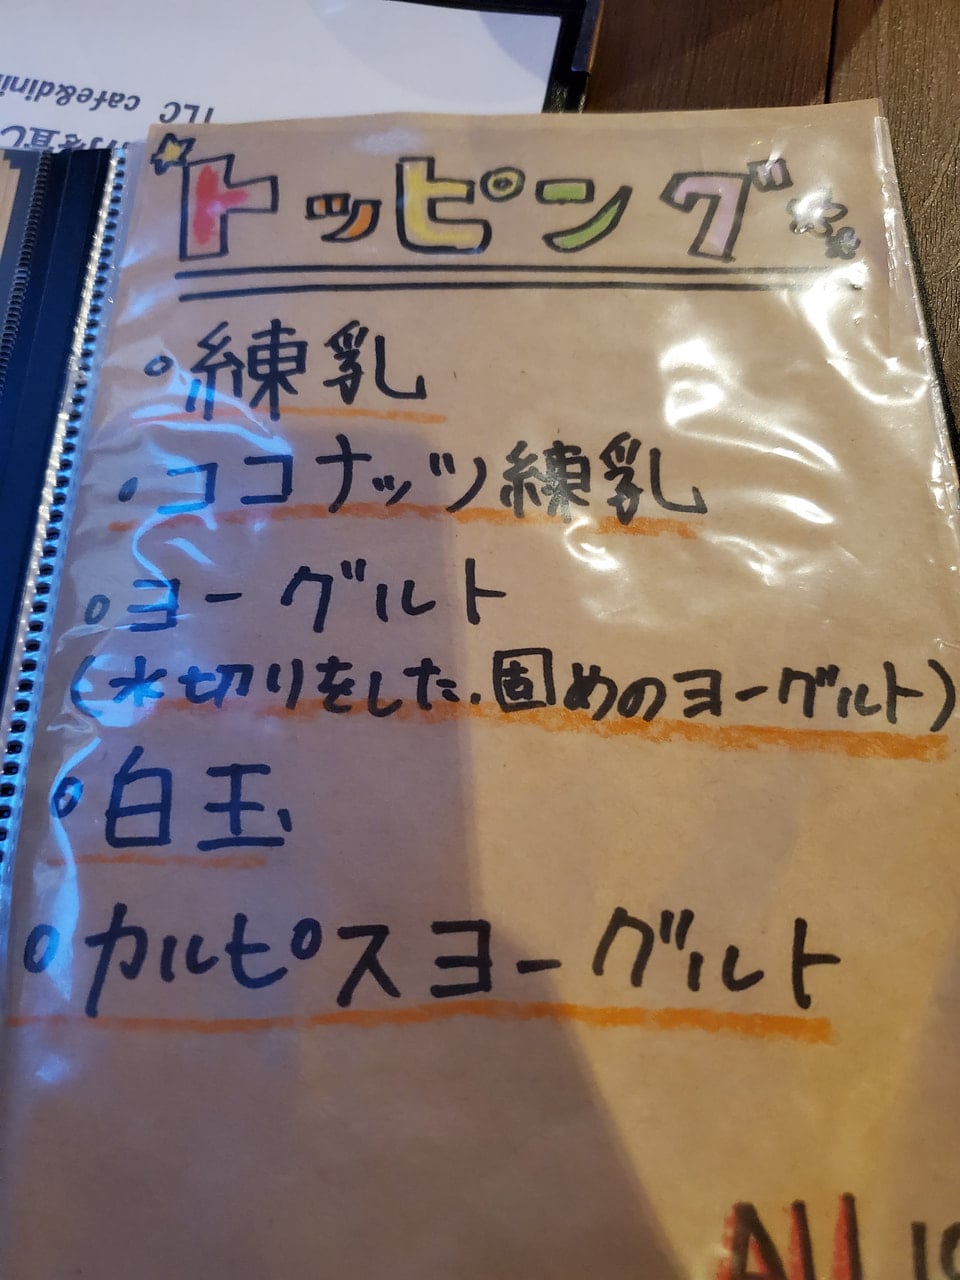 TLC cafe&dini
トッピング
・練乳
・ココナッツ練乳
・ヨーグルト
(水切りをした、固めのヨーグルト)
・白玉
・カルピスヨーグルト
All